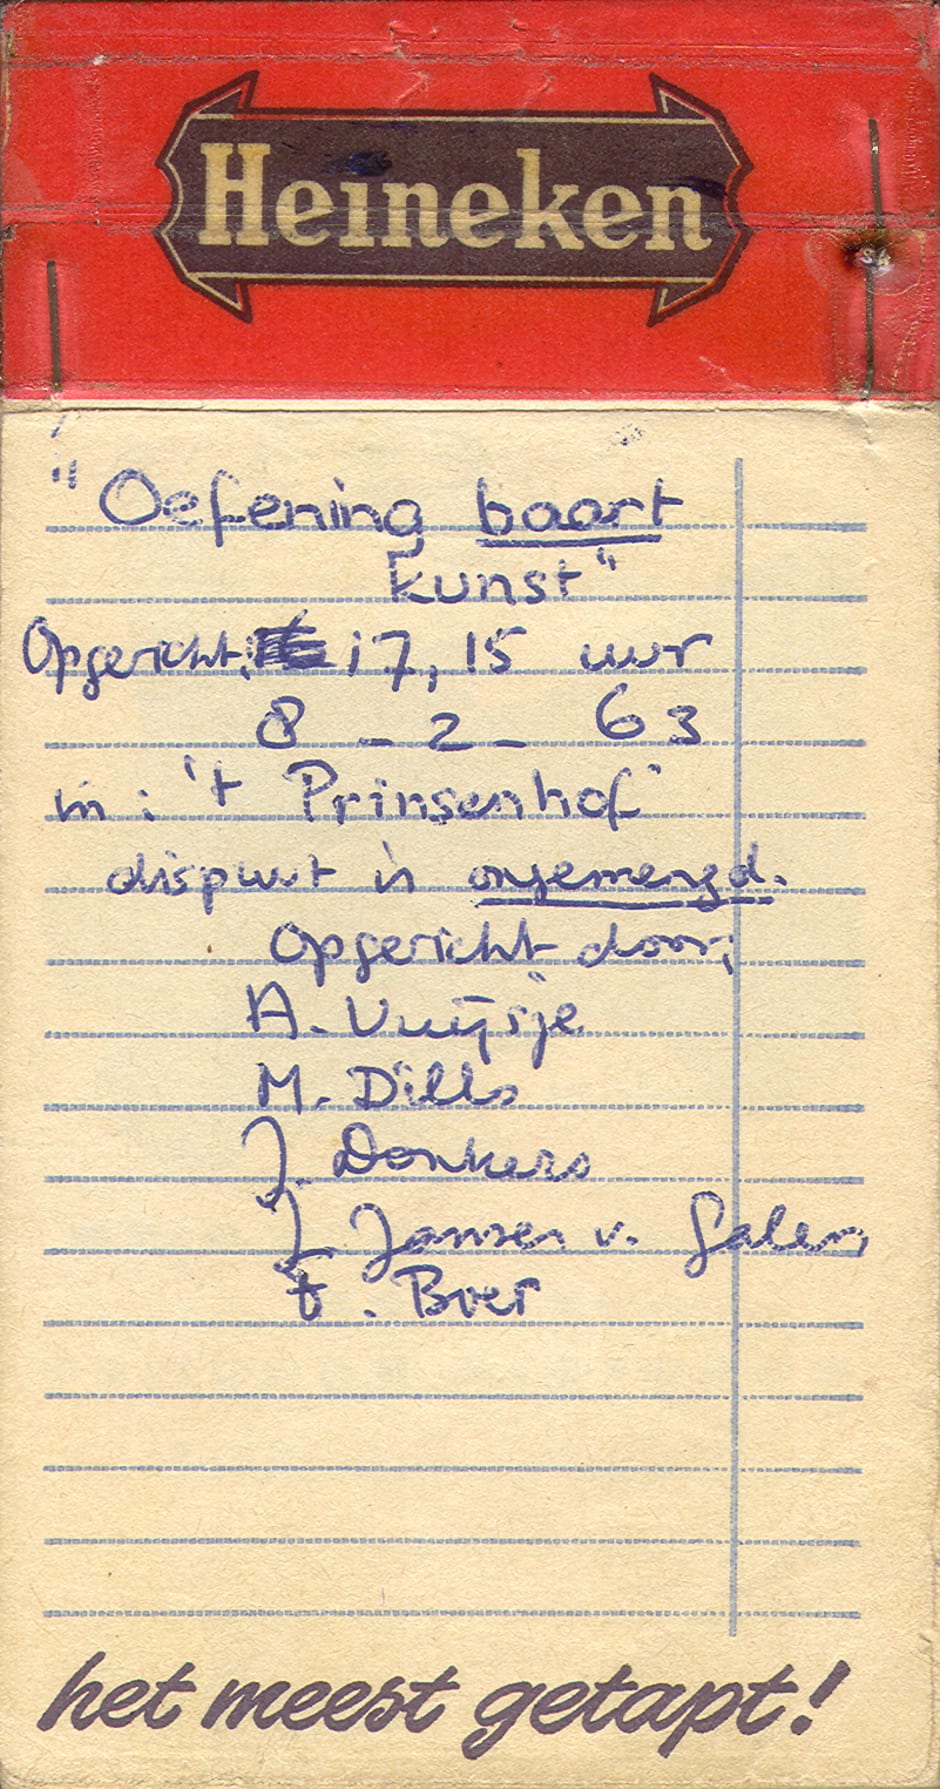 Heineken
"Oefening baart
kunst"
Opgericht: 17,15 uur
8 - 2 - 63
in: 't Prinsenhof'
dispuut is ongemengd.
Opgericht door;
A. Vuijsje
M. Dills
J. Donkers
J. Jansen v. Galen
F. Boer
het meest getapt!